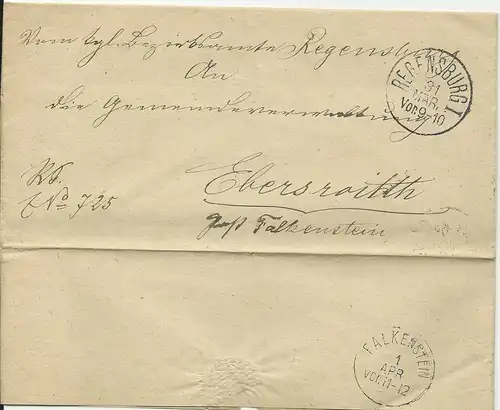 Vom kgl. Bezirksamte Regensburg
An
die Gemeindeverwaltung
REGENSBURG I
31
MÄR.
Vor 9-10
Ebersroith
Post Falkenstein
RS.
E.No 725
FALKENSTEIN
1
APR
Vor.11-12